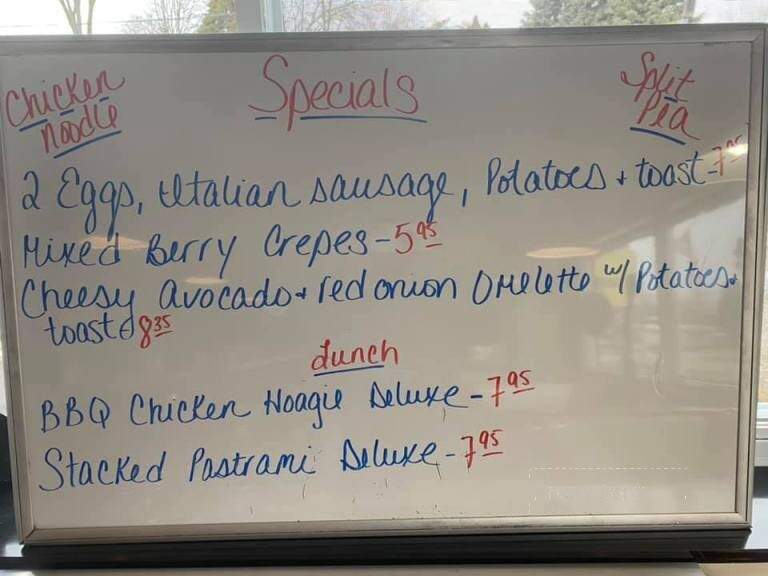 Chicken Noodle
Specials
Split Pea
2 Eggs, Italian sausage, Potatoes + toast - 7 95
Mixed Berry Crepes - 5 95
Cheesy Avocado + red onion Omelette w/ Potatoes +
toast 8 35
Lunch
BBQ Chicken Hoagie Deluxe - 7 95
Stacked Pastrami Deluxe - 7 95